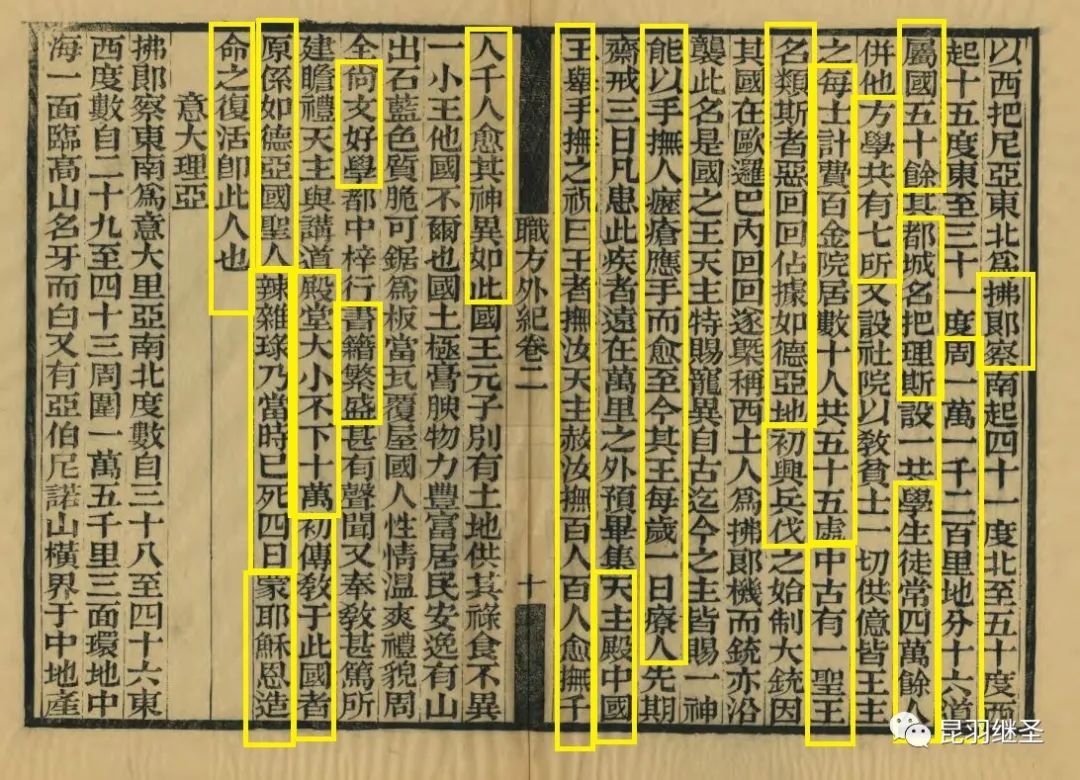 以西把尼亞東北爲拂郞察南起四十一度北至五十度西
起十五度東至三十一度周一萬一千二百里地分十六道
屬國五十餘其都城名把理斯設一共學生徒常四萬餘人
併他方學共有七所又設社院以敎貧士一切供億皆王主
之每士計費百金院居數十人共五十五處中古有一聖王
名類斯者惡回回佔據如德亞地初興兵伐之始制大銃因
其國在歐邏巴內回回遂槩稱西土人爲拂郞機而銃亦沿
襲此名是國之王天主特賜寵異自古迄今之主皆賜一神
能以手撫人癧瘡應手而愈至今其王每歲一日療人先期
齋戒三日凡患此疾者遠在萬里之外預畢集天主殿中國
王舉手撫之祝曰王者撫汝天主赦汝撫百人百人愈撫千
職方外紀卷二 十
人千人愈其神異如此國王元子別有土地供其祿食不異
一小王他國不爾也國土極膏腴物力豐富居民安逸有山
出石藍色質脆可鋸爲板當瓦覆屋國人性情温爽禮貌周
全尙文好學都中梓行書籍繁盛甚有聲聞又奉敎甚篤所
建瞻禮天主與講道殿堂大小不下十萬初傳敎于此國者
原係如德亞國聖人辣雜琭乃當時已死四日蒙耶穌恩造
命之復活卽此人也
意大理亞
拂郞察東南爲意大里亞南北度數自三十八至四十六東
西度數自二十九至四十三周圍一萬五千里三面環地中
海一面臨高山名牙而白又有亞伯尼諾山橫界于中地產
昆羽继圣